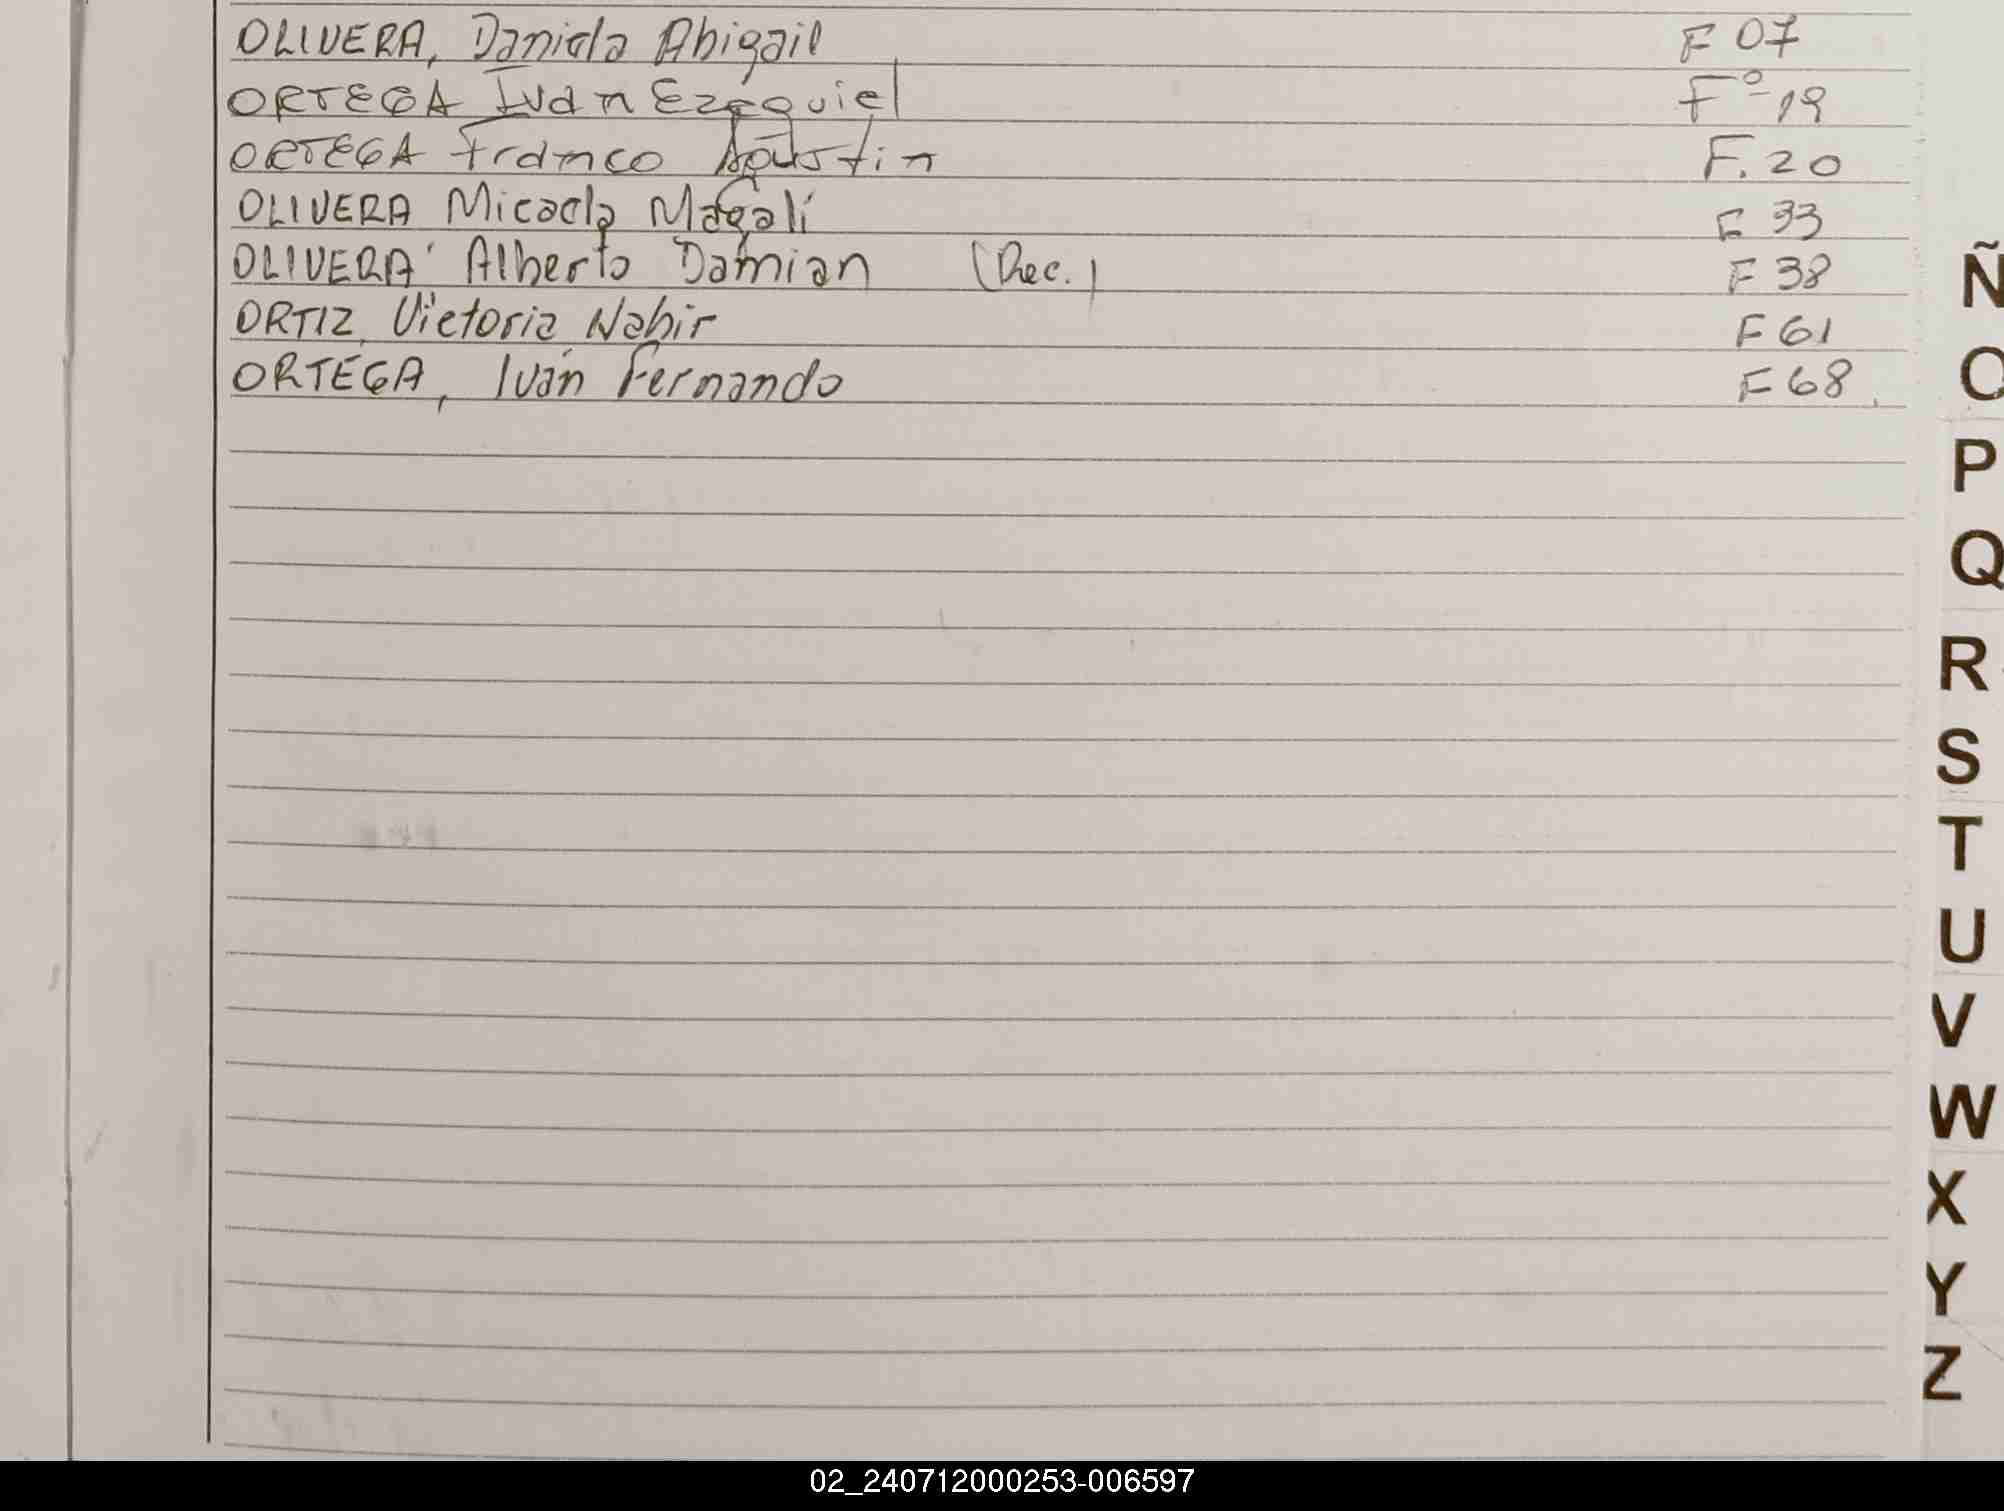 OLIVERA, Daniela Abigail F 07
ORTEGA Ivan Ezequiel Fº 19
ORTEGA Franco Agustin F. 20
OLIVERA Micaela Magalí F 33
OLIVERA Alberto Damian (Rec.) F 38
ORTIZ, Victoria Nahir F 61
ORTEGA, Iván Fernando F 68
Ñ
O
P
Q
R
S
T
U
V
W
X
Y
Z
02_240712000253-006597